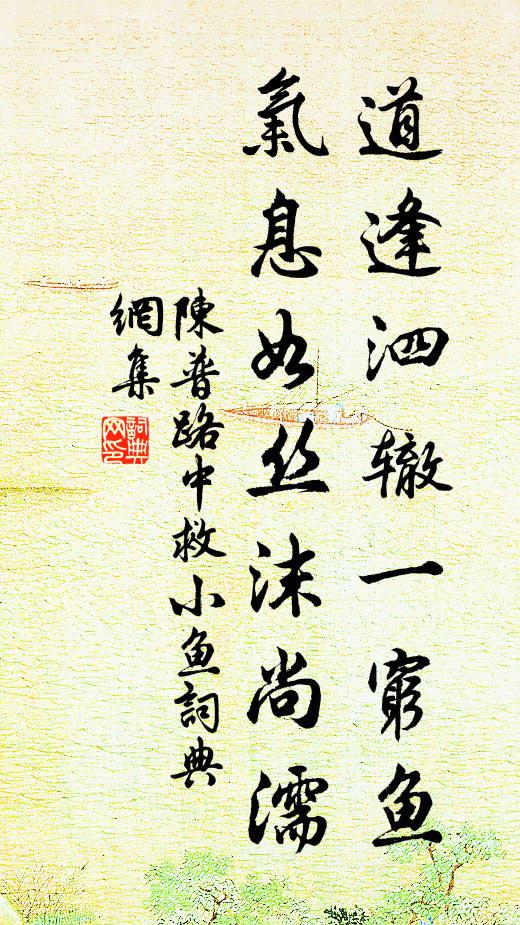 道逢泗辙一窮魚
氣息如丝沫尚濡
陳普路中救小魚詞典
網集
詞典网印